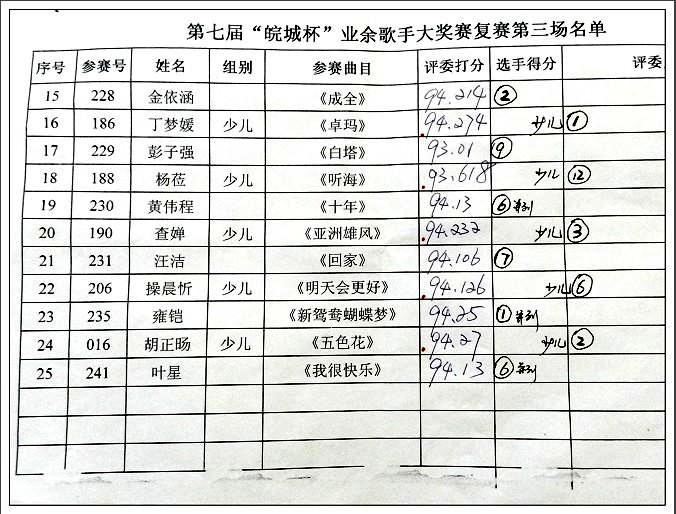 第七届“皖城杯”业余歌手大奖赛复赛第三场名单
序号 参赛号 姓名 组别 参赛曲目 评委打分 选手得分 评委
15 228 金依涵 《成全》 94.214 ②
16 186 丁梦媛 少儿 《卓玛》 94.274 少儿 ①
17 229 彭子强 《白塔》 93.01 ⑨
18 188 杨莅 少儿 《听海》 93.618 少儿 ⑫
19 230 黄伟程 《十年》 94.13 ⑥并列
20 190 查婵 少儿 《亚洲雄风》 94.232 少儿 ③
21 231 汪洁 《回家》 94.106 ⑦
22 206 操晨忻 少儿 《明天会更好》 94.126 少儿 ⑥
23 235 雍铠 《新鸳鸯蝴蝶梦》 94.25 ①并列
24 016 胡正旸 少儿 《五色花》 94.27 少儿 ②
25 241 叶星 《我很快乐》 94.13 ⑥并列